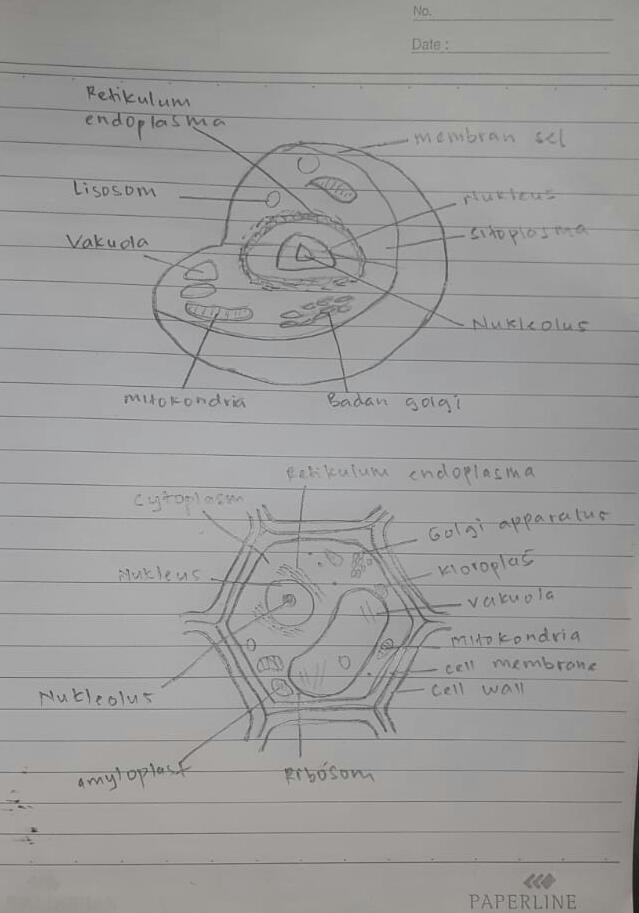 No.
Date :
Retikulum
endoplasma
membran sel
Lisosom
Nukleus
Vakuola
sitoplasma
Nukleolus
Mitokondria
Badan golgi
Retikulum endoplasma
cytoplasm
Golgi apparatus
Nukleus
kloroplas
vakuola
Mitokondria
cell membrane
Nukleolus
cell wall
amyloplast
Ribosom
PAPERLINE